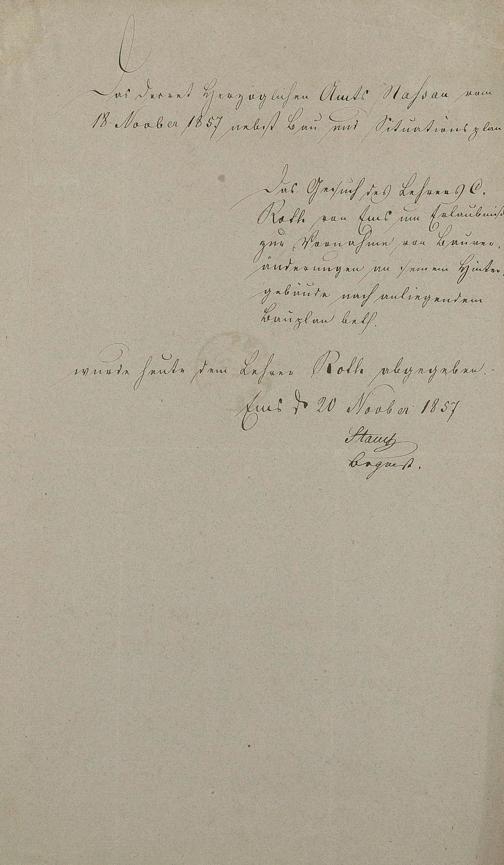 Das Decret Herzoglichen Amts Nassau vom
18 Novber 1857 nebst Bau und Situationsplan
Das Gesuch des Lehrers C.
Roth von Ems um Erlaubniß
zur Vornahme von Bauver-
änderungen an seinem Hinter-
gebäude nach anliegendem
Bauplan betf.
wurde heute dem Lehrer Roth abgegeben.
Ems d 20 Novber 1857
Brgmst.